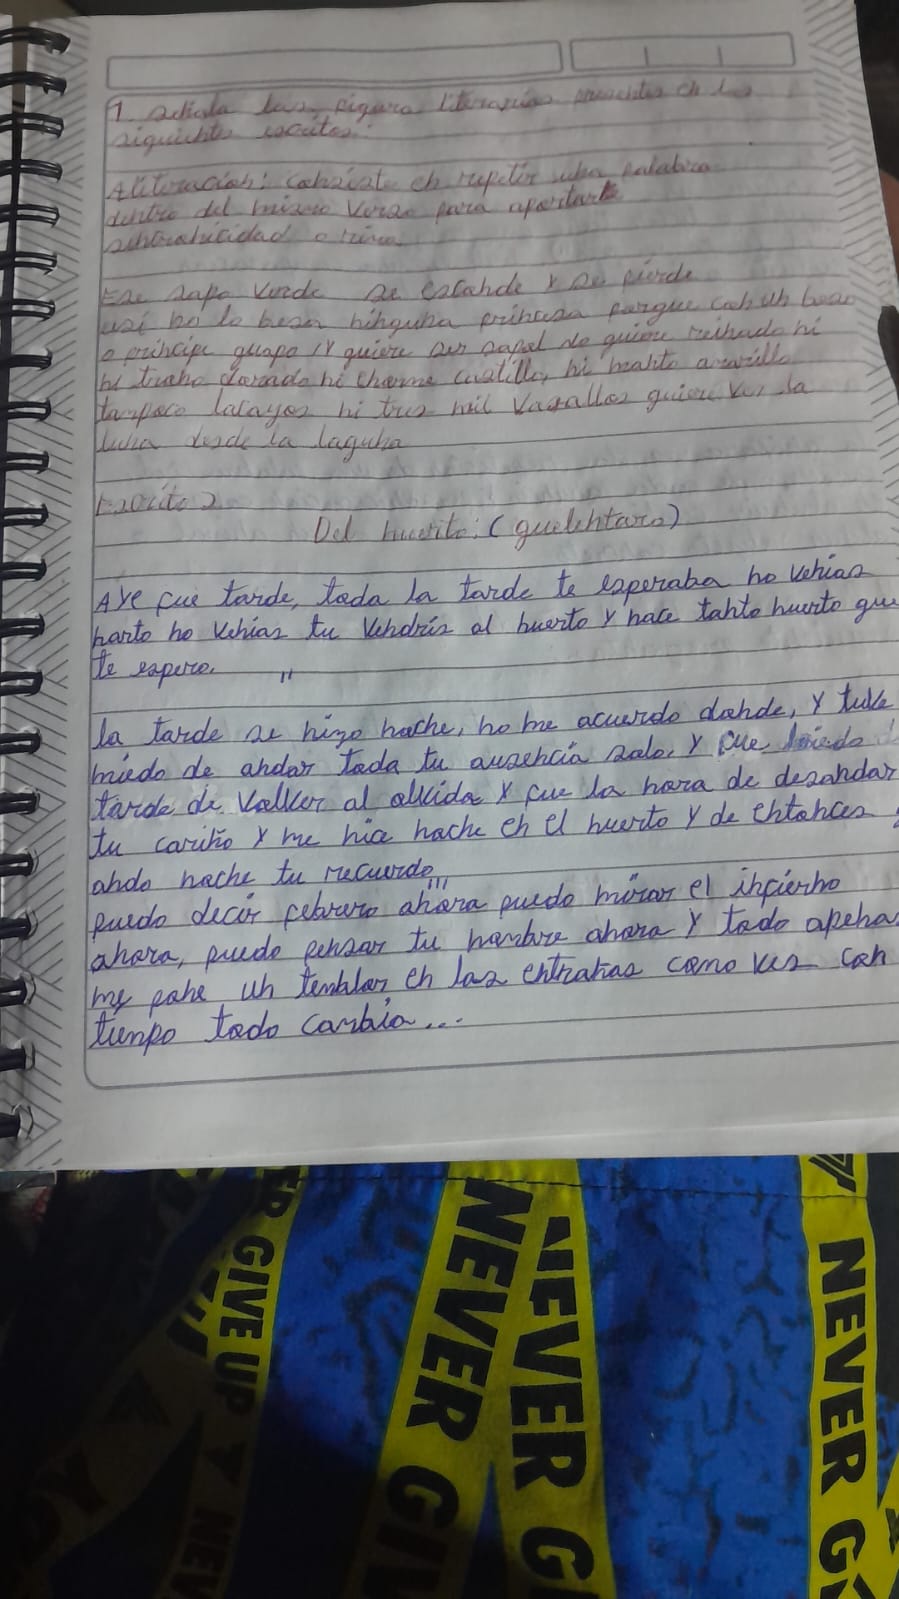 1. señala las figura literarias presentes en los
siguientes escritos:
Aliteración: consiste en repetir una palabra
dentro del mismo verso para aportarle
sintonicidad o rima
Ese sapo verde se esconde y se pierde
así no lo besa ninguna princesa porque con un beso
o príncipe guapo ¡y quiere ser sapo! No quiere reinado ni
ni trono dorado ni enorme castillo, ni manto amarillo
tampoco lacayos ni tres mil vasallos quiere ver la
luna desde la laguna
Escrito 2
Del huerto: (quelentaro)
Aye fue tarde, toda la tarde te esperaba no venias
harto no venias tu vendris al huerto y hace tanto huerto que
te espero.
II
la tarde se hizo noche, no me acuerdo donde, y tuve
miedo de andar toda tu ausencia solo, y fue
tarde de volver al olvida y fue la hora de desandar
tu cariño y me hice noche en el huerto y de entonces
ando noche tu recuerdo
III
puedo decir febrero ahora puedo mirar el infierno
ahora, puedo pensar tu nombre ahora y todo apena
me pone un temblor en las entrañas como ves con
tiempo todo cambia...
NEVER GIVE UP
NEVER GIV
NEVER G
NEVER GI
NEV